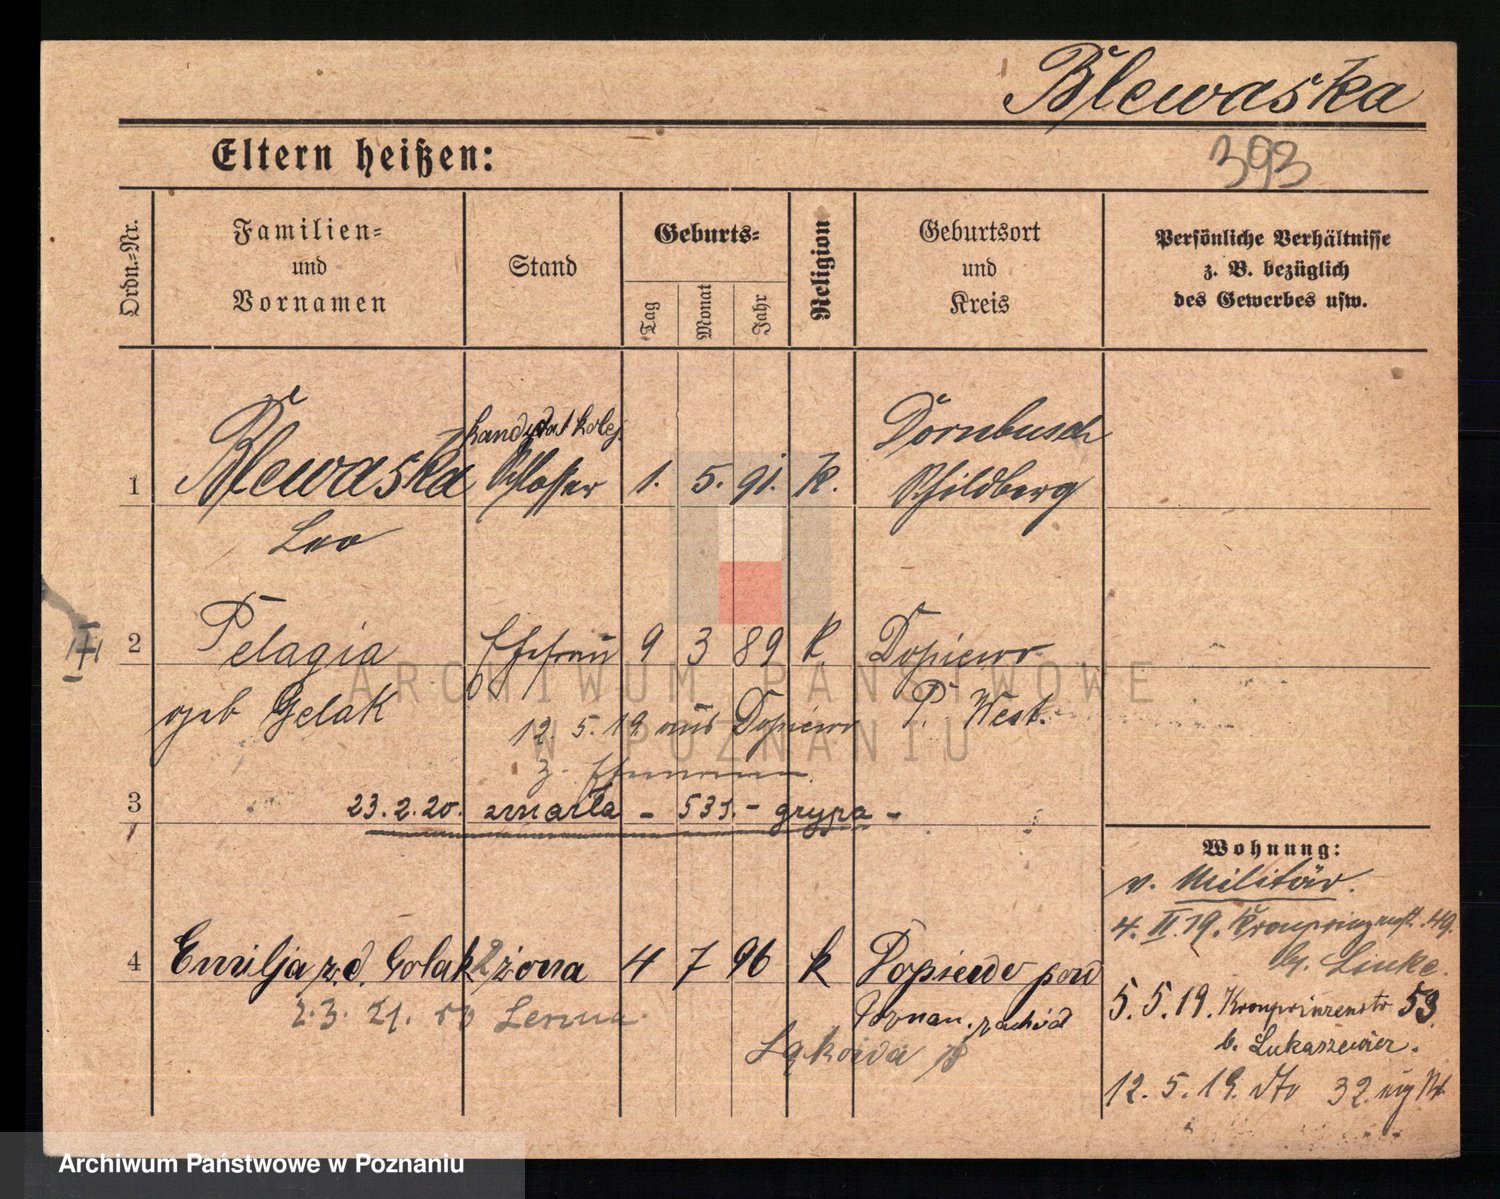 Blewaska
393
Eltern heißen:
Ordn.-Nr.
Familien-
und
Vornamen
Stand
Geburts-
Tag
Monat
Jahr
Religion
Geburtsort
und
Kreis
Persönliche Verhältnisse
z. B. bezüglich
des Gewerbes usw.
kandydat kolej.
1 Blewaska Schlosser 1. 5. 91. k. Dornbusch
Schildberg
Leo
2 Pelagia Ehefrau 9 3 89 k. Dopiewo
geb Gelak P. West.
12. 5. 19 aus Dopiewo
z. Ehemann
3 23.2.20. zmarła - 531.- grypa -
Wohnung:
v. Militär.
4. II. 19. Kronprinzenstr. 49.
by. Linke.
4 Emilja z d. Golak żona 4 7 96 k Dopiewo pow
Poznań. zachód
2.3. 21.
Łąkowa
5.5.19. Kronprinzenstr 53
b. Lukaszewicz.
12. 5. 19. dto 32.
ARCHIWUM PAŃSTWOWE
W POZNANIU
Archiwum Państwowe w Poznaniu